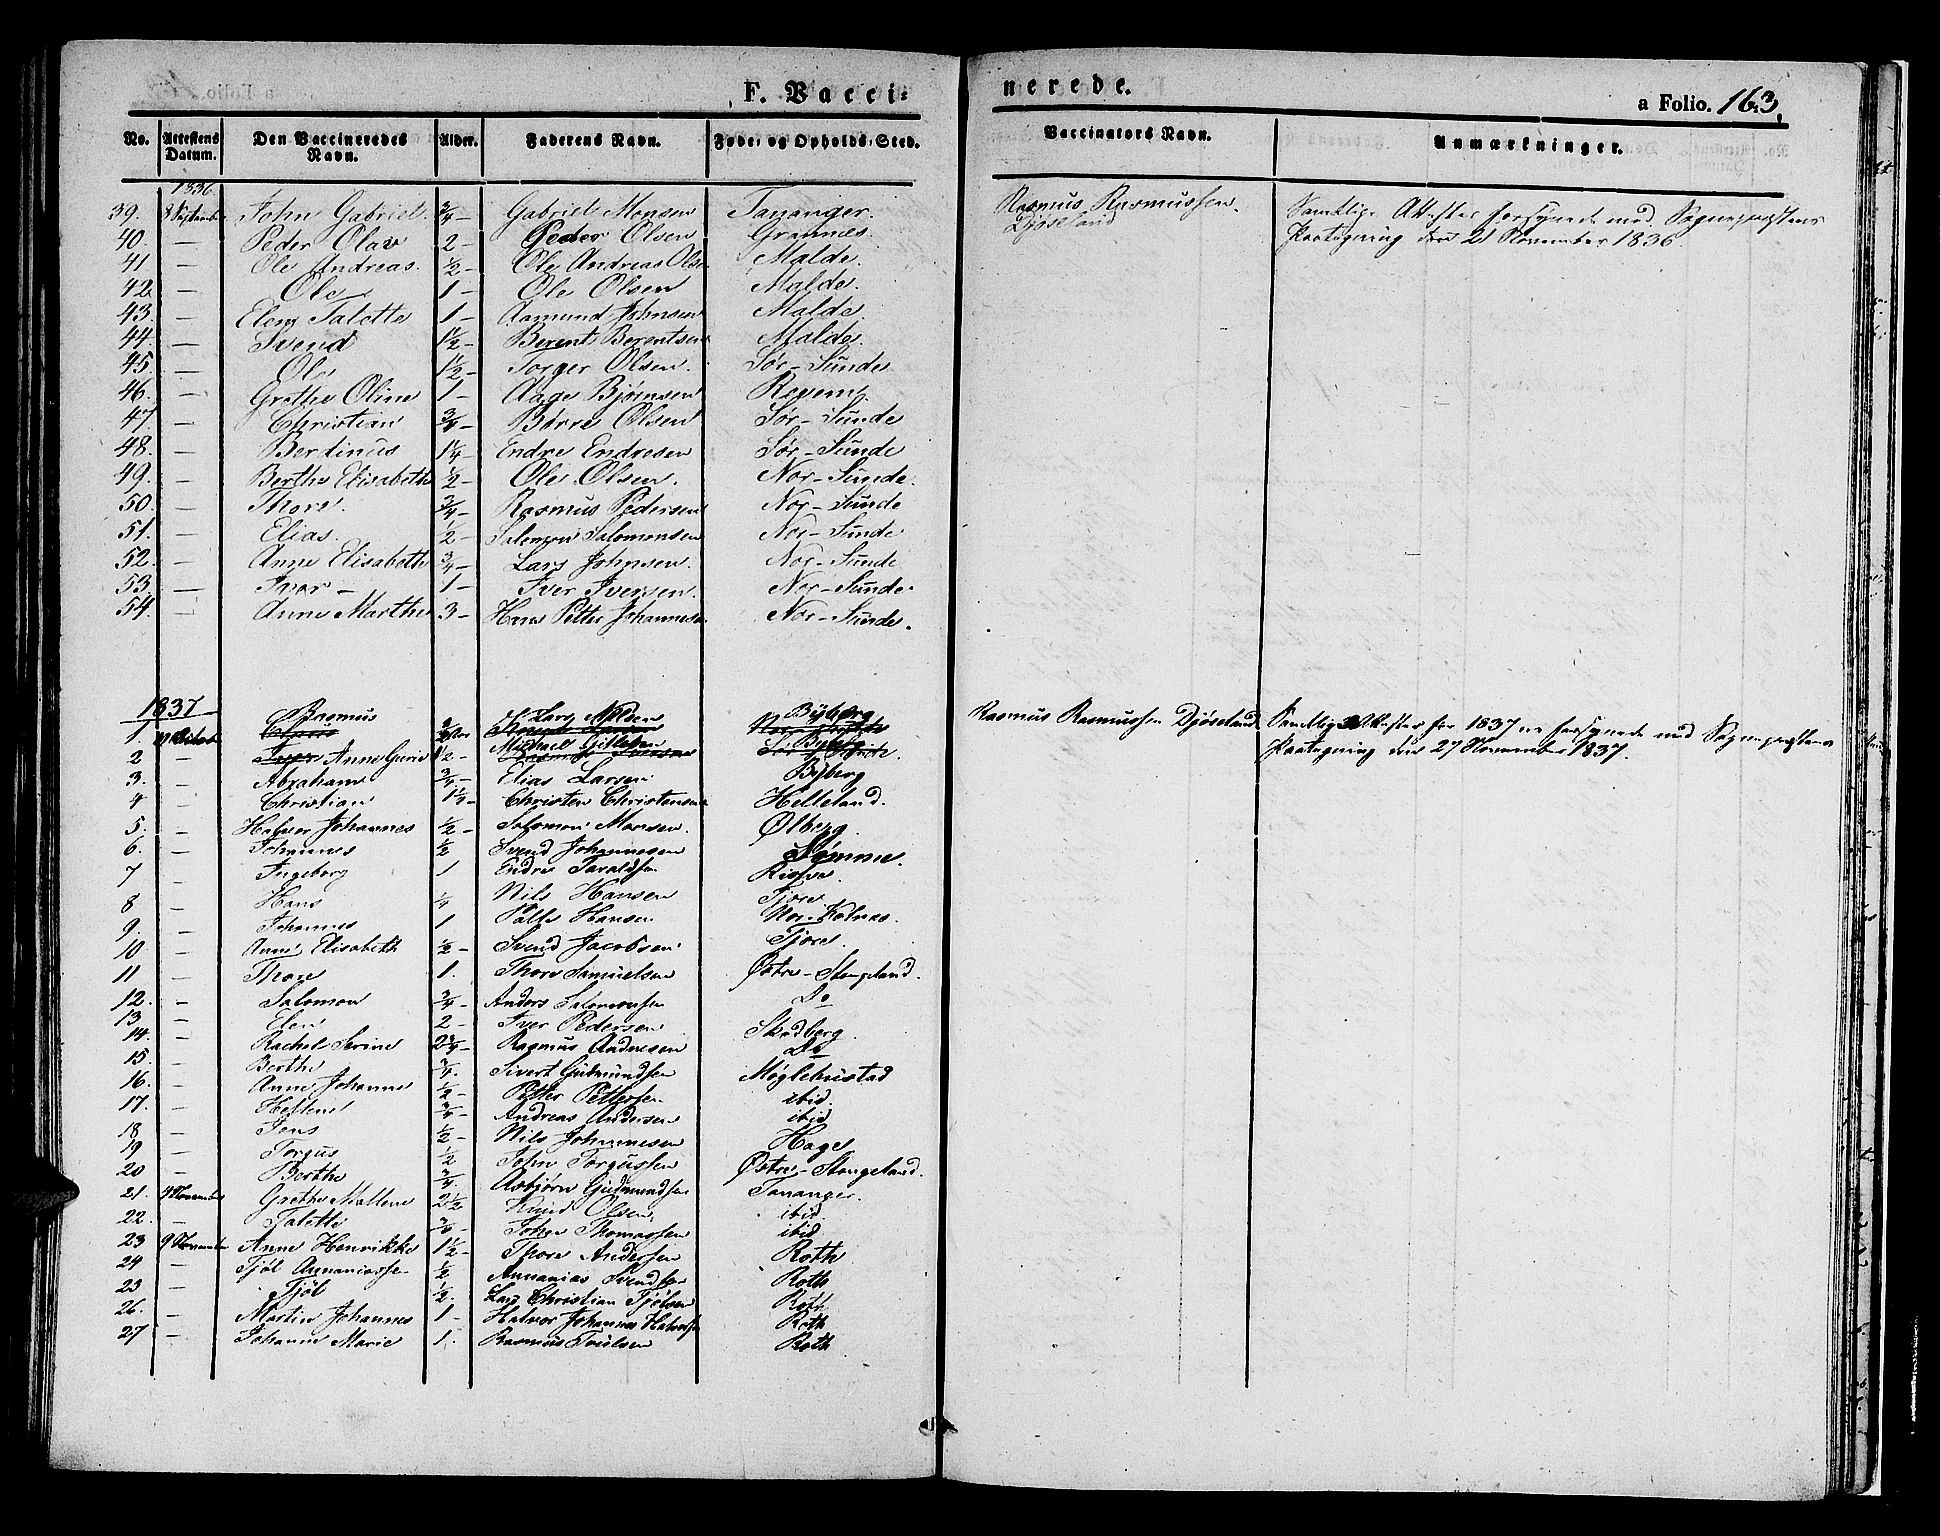 F. Vacci-
nerede.
a Folio. 163.
No. Attestens Datum. Den Vaccineredes Navn. Alder. Faderens Navn. Føde- og Opholds-Sted. Vaccinators Navn. Anmærkninger.
1836
39. 8 September John Gabriel. 3/4 – Gabriel Monsen Tananger. Rasmus Rasmussen Djøseland Samtlige Attester forsynede med Sognepræstens
40. — Peder Olav 2 – Peder Olsen Grannes. Paategning den 21 November 1836.
41 — Ole Andreas. 1/2 – Ole Andreas Olsen Malde.
42. — Ole 1 – Ole Olsen Malde.
43. — Elen Talette 1 – Aamund Johnsen Malde.
44. — Svend 1 1/2 – Berent Berentsen Malde.
45 — Ole 1 1/2 – Torger Olsen. Sør-Sunde
46. — Grethe Oline 1 – Aage Bjørnsen Regem
47 — Christian 3/4 – Børre Olsen Sør-Sunde
48. — Berdinus 1 1/4 – Endre Endresen Sør-Sunde
49. — Berthe Elisabeth 1/2 – Ole Olsen. Nor-Sunde.
50. — Thore. 3/4 – Rasmus Pedersen Nor-Sunde
51. — Elias. 1/2 – Salomon Salomonsen Nor-Sunde
52. — Anne Elisabeth 3/4 – Lars Johnsen. Nor-Sunde
53 — Ivar – 1 – Iver Iversen. Nor-Sunde.
54. — Anne Marthe 3 – Hans Petter Johannesen Nor-Sunde.
1837
1. Rasmus Lars Nilsen Byberg Rasmus Rasmussen Djøseland Samtlige Attester for 1837 ere forsynede med Sognepræstens
2 — Anne Gurie 1/2 – Michael Gitlesen Byberg Paategning den 27 November 1837.
3. — Abraham 3/4 – Elias Larsen Byberg
4 — Christian 1 1/4 – Christen Christensen Helleland.
5. — Halvor Johannes 1/2 – Salomon Monsen. Ølberg
6. — Johannes 1/2 Svend Johannesen Sømme.
7 — Ingeborg 1 Endre Taraldsen
8 — Hans 1/4 Nils Hansen Tjore
9. — Johannes 1 Hansen Nor-Kolnes.
10 — Anne Elisabeth 1/2 – Svend Jacobsen Tjore.
11 — Thore 1. Thore Samuelsen Østre-Stangeland.
12. — Salomon 3/4 – Anders Salomonsen Do
13 — Elen 2 – Iver Pedersen Skadberg
14. — Rachel Serine 2 3/4 – Rasmus Andresen Do
15. — Berthe 3/4. Sivert Gudmundsen Møglebustad
16. — Anne Johanne 1/2 – Petter Pettersen ibid.
17. — Hellene 3/4 – Andreas Andersen ibid
18 — Jens 1/2 – Nils Johannesen Haga
19 — Torgus 1/2 John Torgussen Østre-Stangeland.
20 — Berthe 3/4. Asbjørn Gudmundsen Tananger.
21. 4 November Grethe Mallene 2 1/2 Knud Olsen ibid
22. — Talette 3/4 – John Thomassen ibid
23 9 November Anne Henrikke 1 1/2 – Thore Andersen Roth
24 — Tjøl Annaniassen 1/2 Annanias Svendsen Roth
25 — Tjøl 1/2. Lars Christian Tjølsen Roth
26. — Martin Johannes 1 – Halvor Johannes Halvorsen Roth
27 — Johanne Marie 1. Rasmus Roth